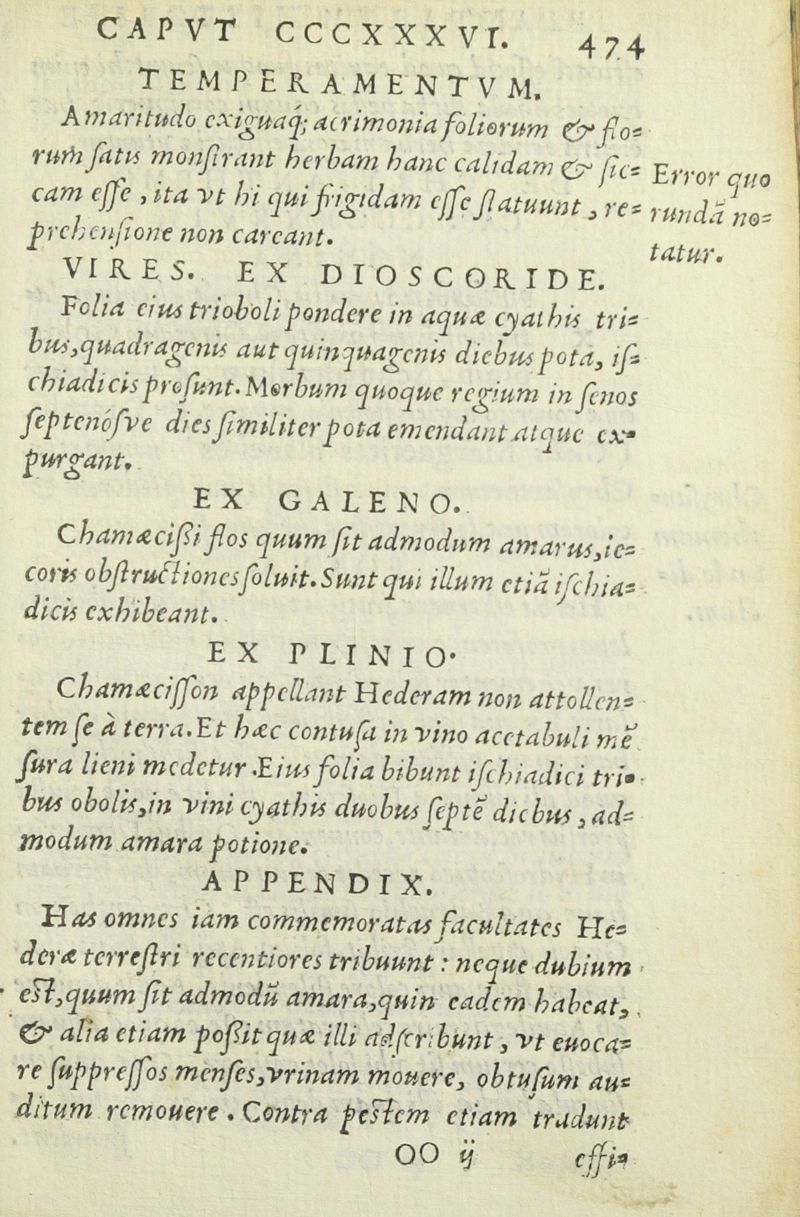 CAPVT CCCXXXVI. 474
TEMPERAMENTVM.
Amaritudo exiguaq́; acrimonia foliorum & flo=
rum̃ satis monstrant herbam hanc calidam & sic=
cam esse, ita vt hi qui frigidam esse statuunt, re=
prehensione non careant.
Error quo
rundã no=
tatur.
VIRES. EX DIOSCORIDE.
Folia eius trioboli pondere in aquæ cyathis tri=
bus, quadragenis aut quinquagenis diebus pota, is=
chiadicis prosunt. Morbum quoque regium in senos
septenósve dies similiter pota emendant atque ex=
purgant.
EX GALENO.
Chamæcißi flos quum sit admodum amarus, ie=
coris obstructiones soluit. Sunt qui illum etiã ischia=
dicis exhibeant.
EX PLINIO.
Chamæcisson appellant Hederam non attollen=
tem se à terra. Et hæc contusa in vino acetabuli mẽ
sura lieni medetur. Eius folia bibunt ischiadici tri=
bus obolis, in vini cyathis duobus septẽ diebus, ad=
modum amara potione.
APPENDIX.
Has omnes iam commemoratas facultates He=
deræ terrestri recentiores tribuunt: neque dubium
est, quum sit admodũ amara, quin eadem habeat,
& alia etiam poßit quæ illi adscribunt, vt euoca=
re suppressos menses, vrinam mouere, obtusum au=
ditum remouere. Contra pestem etiam tradunt
OO ij effi=